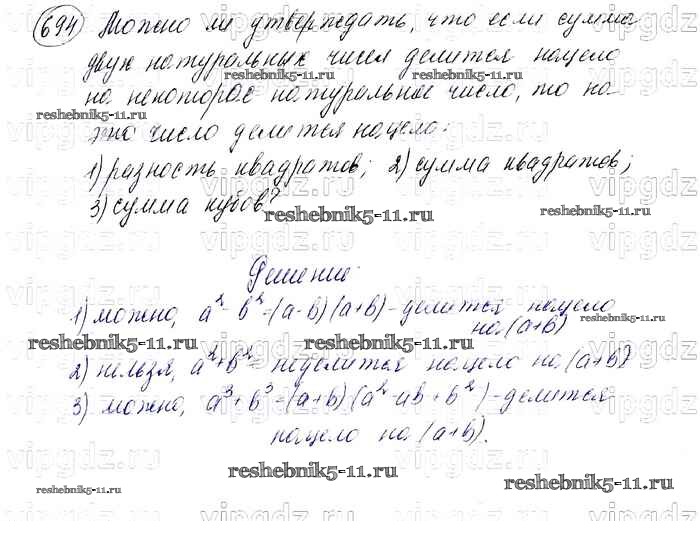 694 Можно ли утверждать, что если сумма
двух натуральных чисел делится нацело
на некоторое натуральное число, то на
это число делится нацело:
1) разность квадратов; 2) сумма квадратов;
3) сумма кубов?
Решение:
1) можно, a² - b² = (a-b)(a+b) - делится нацело
на (a+b)
2) нельзя, a² + b² - неделится нацело на (a+b)
3) можно, a³ + b³ = (a+b)(a² - ab + b²) - делится
нацело на (a+b).
reshebnik5-11.ru
reshebnik5-11.ru
reshebnik5-11.ru
reshebnik5-11.ru
reshebnik5-11.ru
reshebnik5-11.ru
reshebnik5-11.ru
reshebnik5-11.ru
reshebnik5-11.ru
reshebnik5-11.ru
vipgdz